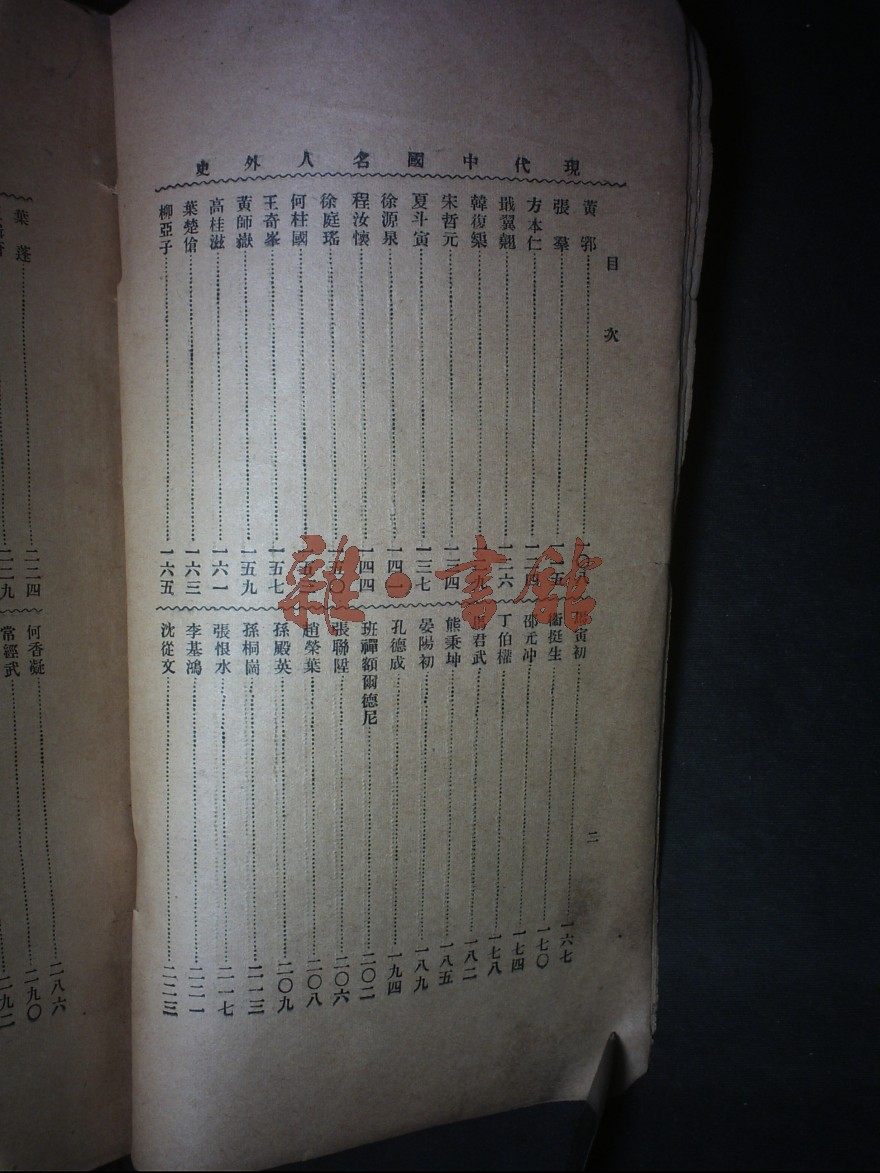 現代中國名人外史
目次
黃郛 一〇八
張羣 一一五
方本仁 一二四
戢翼翹 一二六
韓復榘 一二九
宋哲元 一三四
夏斗寅 一三七
徐源泉 一四一
程汝懷 一四四
徐庭瑤 一五〇
何柱國
王奇峯 一五七
黃師嶽 一五九
高桂滋 一六一
葉楚傖 一六三
柳亞子 一六五
寅初 一六七
衞挺生 一七〇
邵元冲 一七四
丁伯權 一七八
君武 一八二
熊秉坤 一八五
晏陽初 一八九
孔德成 一九四
班禪額爾德尼 二〇二
張聯陞 二〇六
趙榮葉 二〇八
孫殿英 二〇九
孫桐崗 二一三
張恨水 二一七
李基鴻 二二一
沈從文 二二三
二
葉蓬 二二四
二二九
何香凝 二八六
常經武 二九〇
二九二
雜·書館